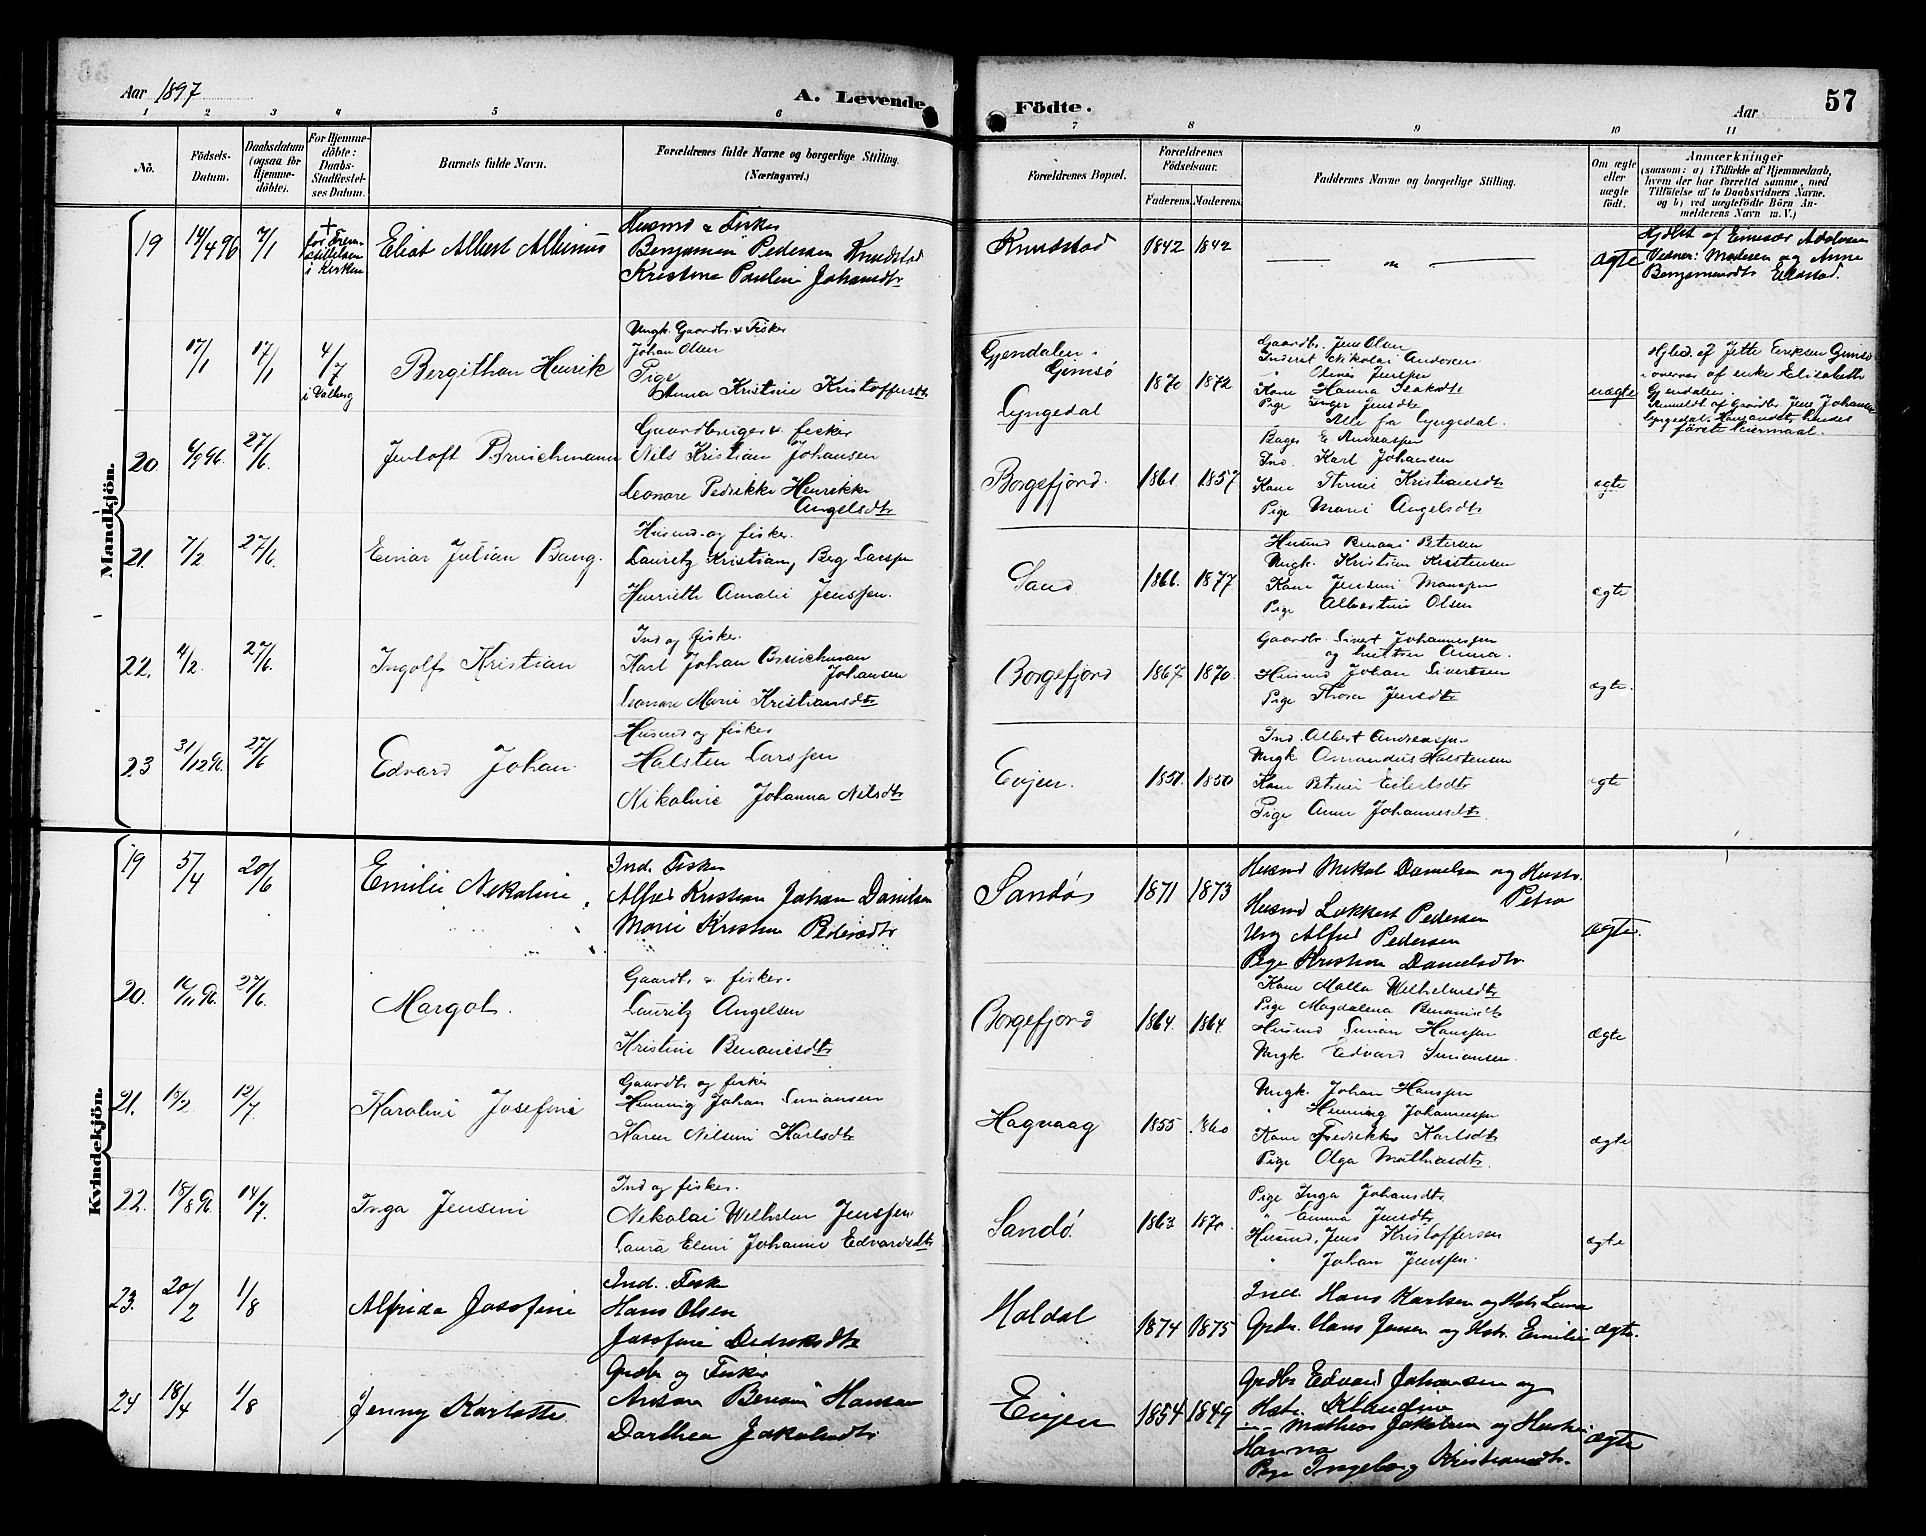 Aar 1897
A. Levende
Födte.
Aar
57
1 2 3 4 5 6 7 8 9 10 11
No.
Födsels-
Datum.
Daabsdatum
(ogsaa for
Hjemme-
döbte).
For Hjemme-
döbte:
Daabs-
Stadfæstel-
ses Datum.
Barnets fulde Navn.
Forældrenes fulde Navne og borgerlige Stilling.
(Næringsvei.)
Forældrenes Bopæl.
Forældrenes
Födselsaar.
Faderens. Moderens.
Faddernes Navne og borgerlige Stilling.
Om ægte
eller
uægte
födt.
Anmærkninger
(saasom: a) i Tilfælde af Hjemmedaab,
hvem der har forrettet samme, med
Tilföielse af to Daabsvidners Navne.
og b) ved uægtefödte Börn An-
melderens Navn m. V.)
Mandkjön.
19 14/4 96 7/1
+
for Frem-
stillelsen
i Kirken
Eliot Albert Albinus
Husmd & Fisker
Benjamin Pedersen Knudstad
Kristine Pauline Johansdtr
Knudstad 1842 1842
— " —
ægte
Hjdbt af Einar
Madsen og Anne
17/1 17/1 4/7
i Valberg
Bergithon Henrik
Ungk. Gaardbr. & Fisker
Johan Olsen
Pige
Anna Kristine Kristoffersdtr
Gjendalen
Gimsö
Lyngedal
1870 1872
Gaardbr. Jens Olsen
Inderst Nikolai Andersen
" Olines Jenssen
Kone Hanna Isaksdtr
Pige Inger Jensdtr
Alle fra Lyngedal.
uægte
Hjdbd. af Jette Eriksen Gimsö
i overvær af enke Elisabeth
Gjendalen.
Anmeldt af Gaardbr. Jens Johansen
første Leiermaal.
20. 27/6.
Jentoft Bruichmann
Gaardbruger & fisker
Nils Kristian Johansen
Leonore Pedrikke Henrikke
Angelsdtr
Borgefjord. 1861. 1857
Bager E. Andreassen
Ind. Karl Johansen
Kone Thrine Kristiansdtr
Pige Marie Angelsdtr
ægte
21. 7/2 27/6.
Einar Julian Bang.
Husmd. og fisker.
Lauritz Kristian Berg Larssen
Henriette Amalie Jenssen.
Sand 1866. 1877
Husmd Benoni Petersen
Ungk. Kristian Kristensen
Kone Jensine Monssen
Pige Albertine Olsen
ægte
22. 4/2. 27/6.
Ingolf Kristian
Ind og fisker.
Karl Johan Bruichman
Johansen
Leonore Marie Kristiansdtr
Borgefjord 1867 1870.
Gaardbr. Sivert Johannessen
og hustru Anna.
Husmd Johan Sivertsen
Pige Thora Jensdtr
ægte.
23 31/12 96. 27/6
Edvard Johan.
Husmd og fisker
Halsten Larssen
Nikoline Johanna Nilsdtr
Evjen. 1851. 1850
Ind. Albert Andreassen
Ungk Amandus Halstensen
Kone Petrine Eilertsdtr
Pige Anne Johannesdtr.
ægte
Kvindekjön.
19 5/4 20/6
Emilie Nekoline
Ind. Fisker
Alfred Kristian Johan Danielsen
Marie Kristine Pedersdtr
Sandö 1871 1873
Husmd Mikal Danielsen og Hustr.
Petra
Husmd Lokkert Pedersen
Ung Alfred Pedersen
Pige Kristine Danielsdtr.
ægte.
20. 27/6.
Margot.
Gaardbr & fisker.
Lauritz Angelsen
Kristine Benonisdtr
Borgefjord 1864. 1864.
Kone Malla Wilhelmsdtr
Pige Magdalena Benonisdtr
Husmd Simon Hanssen
Ungk Edvard Simonsen.
Ægte
21. 13/2 12/7
Karoline Josefine
Gaardbr. og fisker
Henning Johan Simonsen
Karen Nilsine Karlsdtr
Hagvaag 1855 1860
Ungk. Johan Hanssen
" Henning Johannessen
Kone Fredrikke Karlsdtr
Pige Olga Mathiasdtr.
ægte
22. 18/8 96 14/7.
Inga Jensine
Ind og fisker.
Nekolai Wilhelm Jenssen
Laura Eline Johanne Edvardsdtr
Sandö. 1863 1870.
Pige Inga Johansdtr.
" Emma Jensdtr
Husmd. Jens Kristoffersen
" Johan Jenssen.
ægte
23. 20/2 1/8
Alfrida Josefine
Ind. Fisker
Hans Olsen
Josefine Dedriksdtr
Holdal 1874 1875
Ind. Hans Karlsen og Hstr Lena
Grdbr. Hans Jensen og Hstr. Emilie
ægte.
24 18/4 1/8
Jenny Karlotte
Grdbr og Fisker
Anton Benoni Hansen
Dorthea Jakobsdtr
Evjen 1854 1849
Grdbr Edvard Johansen og
Hstr. Klaudine
— " — Mathias Jakobsen og Hustru
Hanna
Pige Ingeborg Kristiansdtr.
ægte